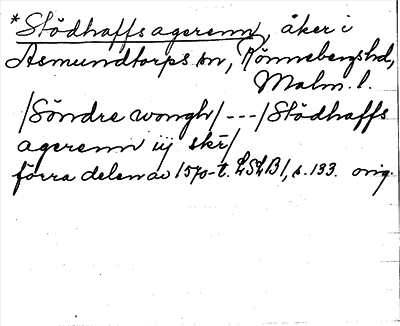 *Stödhaffs agerenn, åker i
Asmundtorps sn, Rönnebergs hd,
Malm. l.
/Söndre wongh/ --- /Stödhaffs
agerenn iij skr/
förra delen av 1570-t. LSLB1, s. 133. orig.